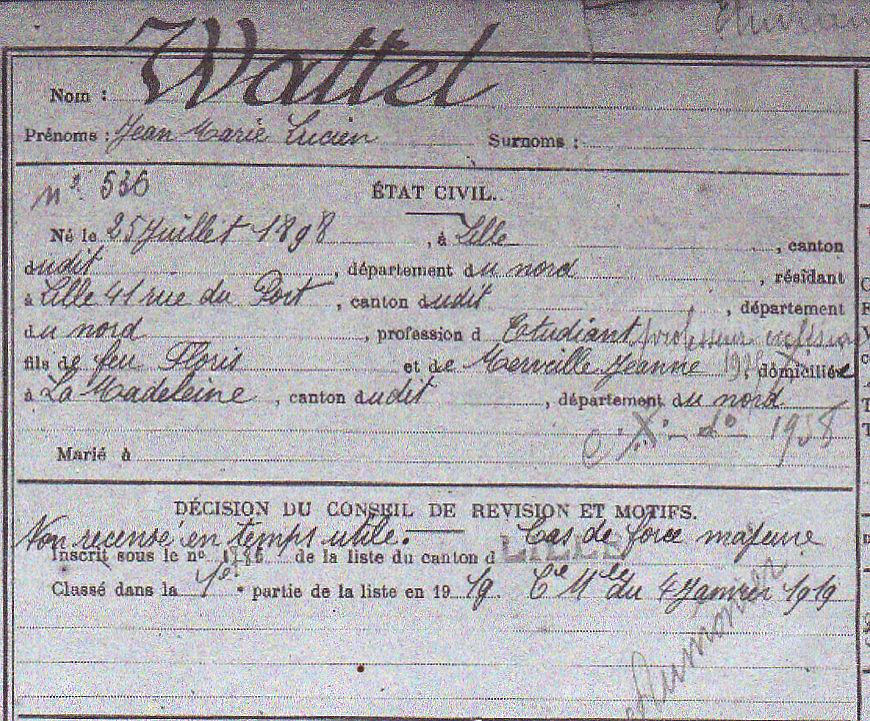 Nom : Wattel
Prénoms : Jean Marie Lucien Surnoms :
n° 536 ÉTAT CIVIL.
Né le 25 Juillet 1898, à Lille, canton
dudit, département du nord, résidant
à Lille 41 rue du Port, canton dudit, département
du nord, profession d Etudiant professeur
fils de feu Floris et de Merveille Jeanne, domiciliée
à La Madeleine, canton dudit, département du nord
d° 1938
Marié à
DÉCISION DU CONSEIL DE REVISION ET MOTIFS.
Non recensé en temps utile. Cas de force majeure
Inscrit sous le n° 1786 de la liste du canton d LILLE
Classé dans la 1e partie de la liste en 1919. Cie Mle du 4 Janvier 1919
Aumonier